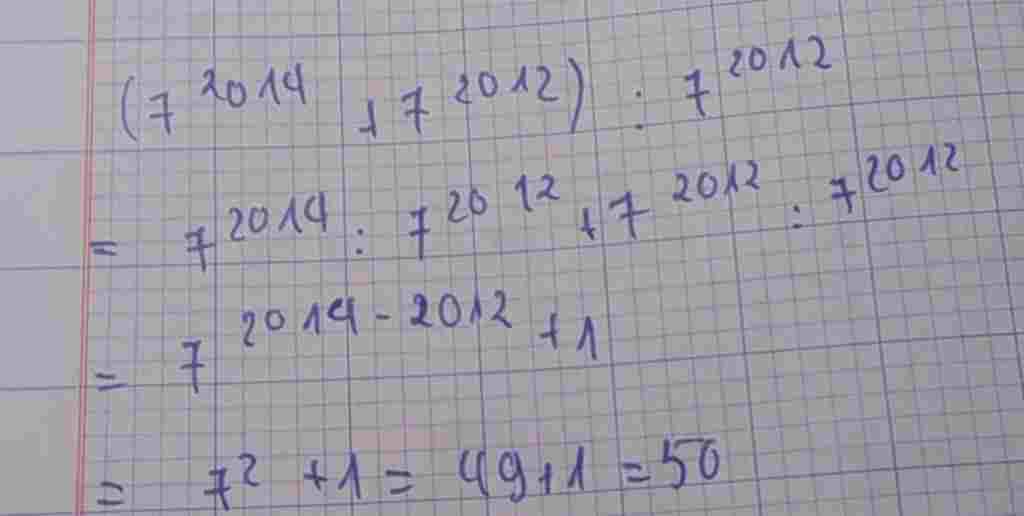 (7^2014 + 7^2012) : 7^2012
= 7^2014 : 7^2012 + 7^2012 : 7^2012
= 7^2014-2012 + 1
= 7^2 + 1 = 49 + 1 = 50